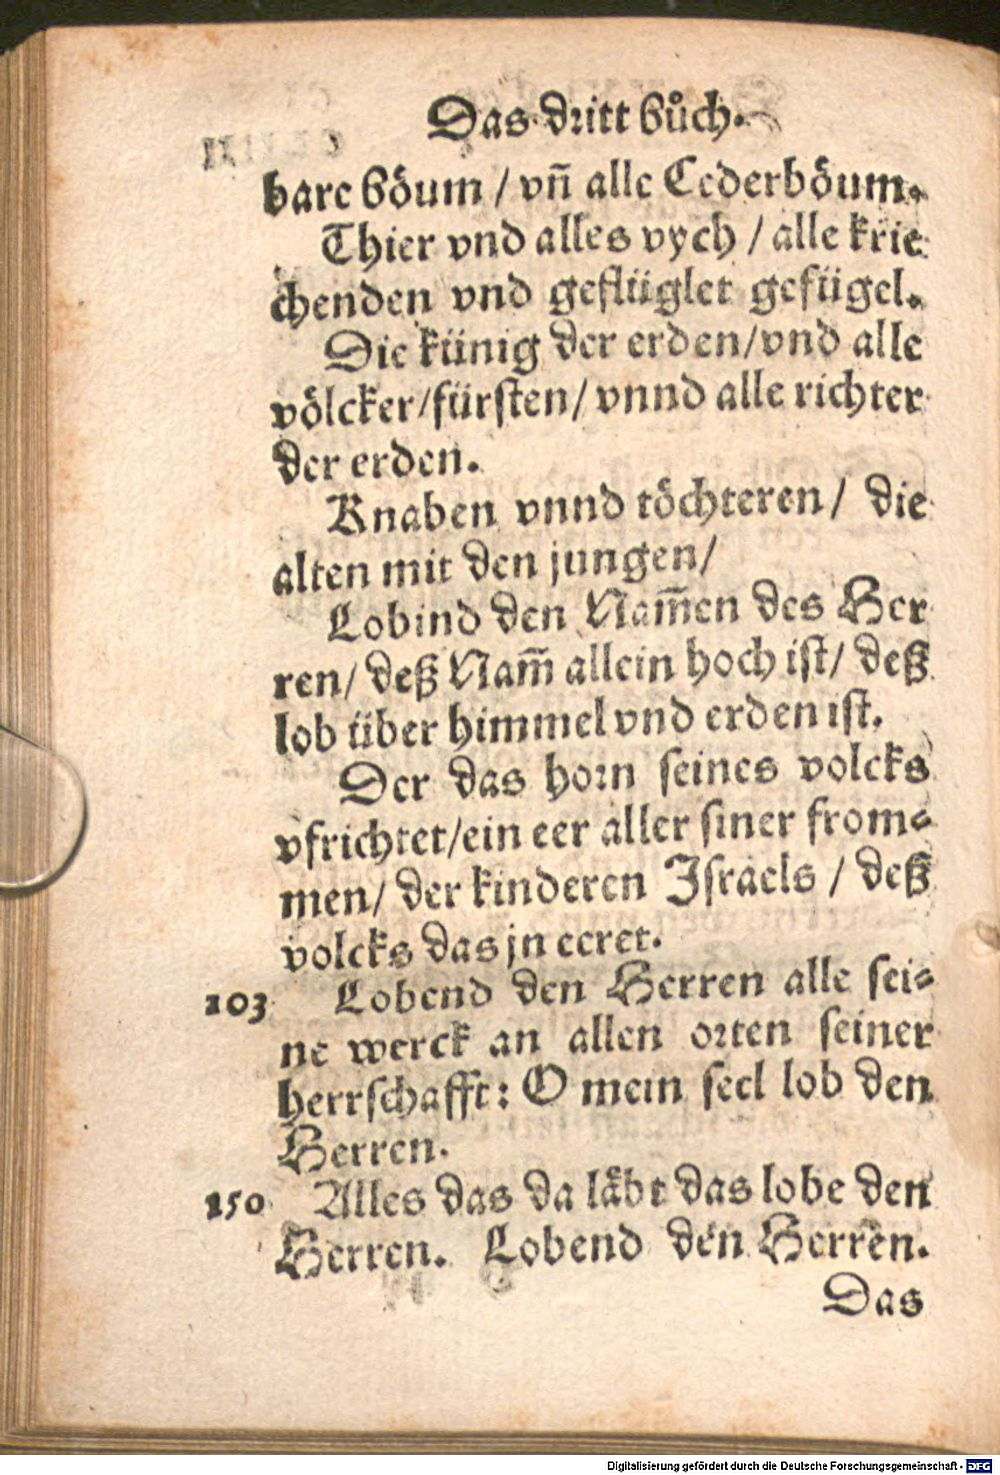 Das dritt bůch.
bare böum / vñ alle Cederböum.
Thier vnd alles vych / alle krie
chenden vnd geflüglet gefügel.
Die künig der erden/vnd alle
völcker/fürsten/ vnnd alle richter
der erden.
Knaben vnnd töchteren/ die
alten mit den jungen/
Lobind den Nam̃en des Her
ren/ deß Nam̃ allein hoch ist/ deß
lob über himmel vnd erden ist.
Der das horn seines volcks
vfrichtet/ein eer aller siner from⸗
men/ der kinderen Israels / deß
volcks das jn eeret.
103 Lobend den Herren alle sei⸗
ne werck an allen orten seiner
herrschafft: O mein seel lob den
Herren.
150 Alles das da läbt das lobe den
Herren. Lobend den Herren.
Das
Digitalisierung gefördert durch die Deutsche Forschungsgemeinschaft - DFG